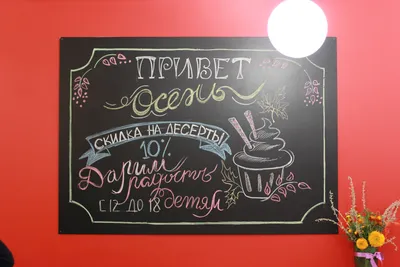 ПРИВЕТ
Осень
СКИДКА НА ДЕСЕРТЫ
10%
Дарим
радость
детям
С 12 ДО 18